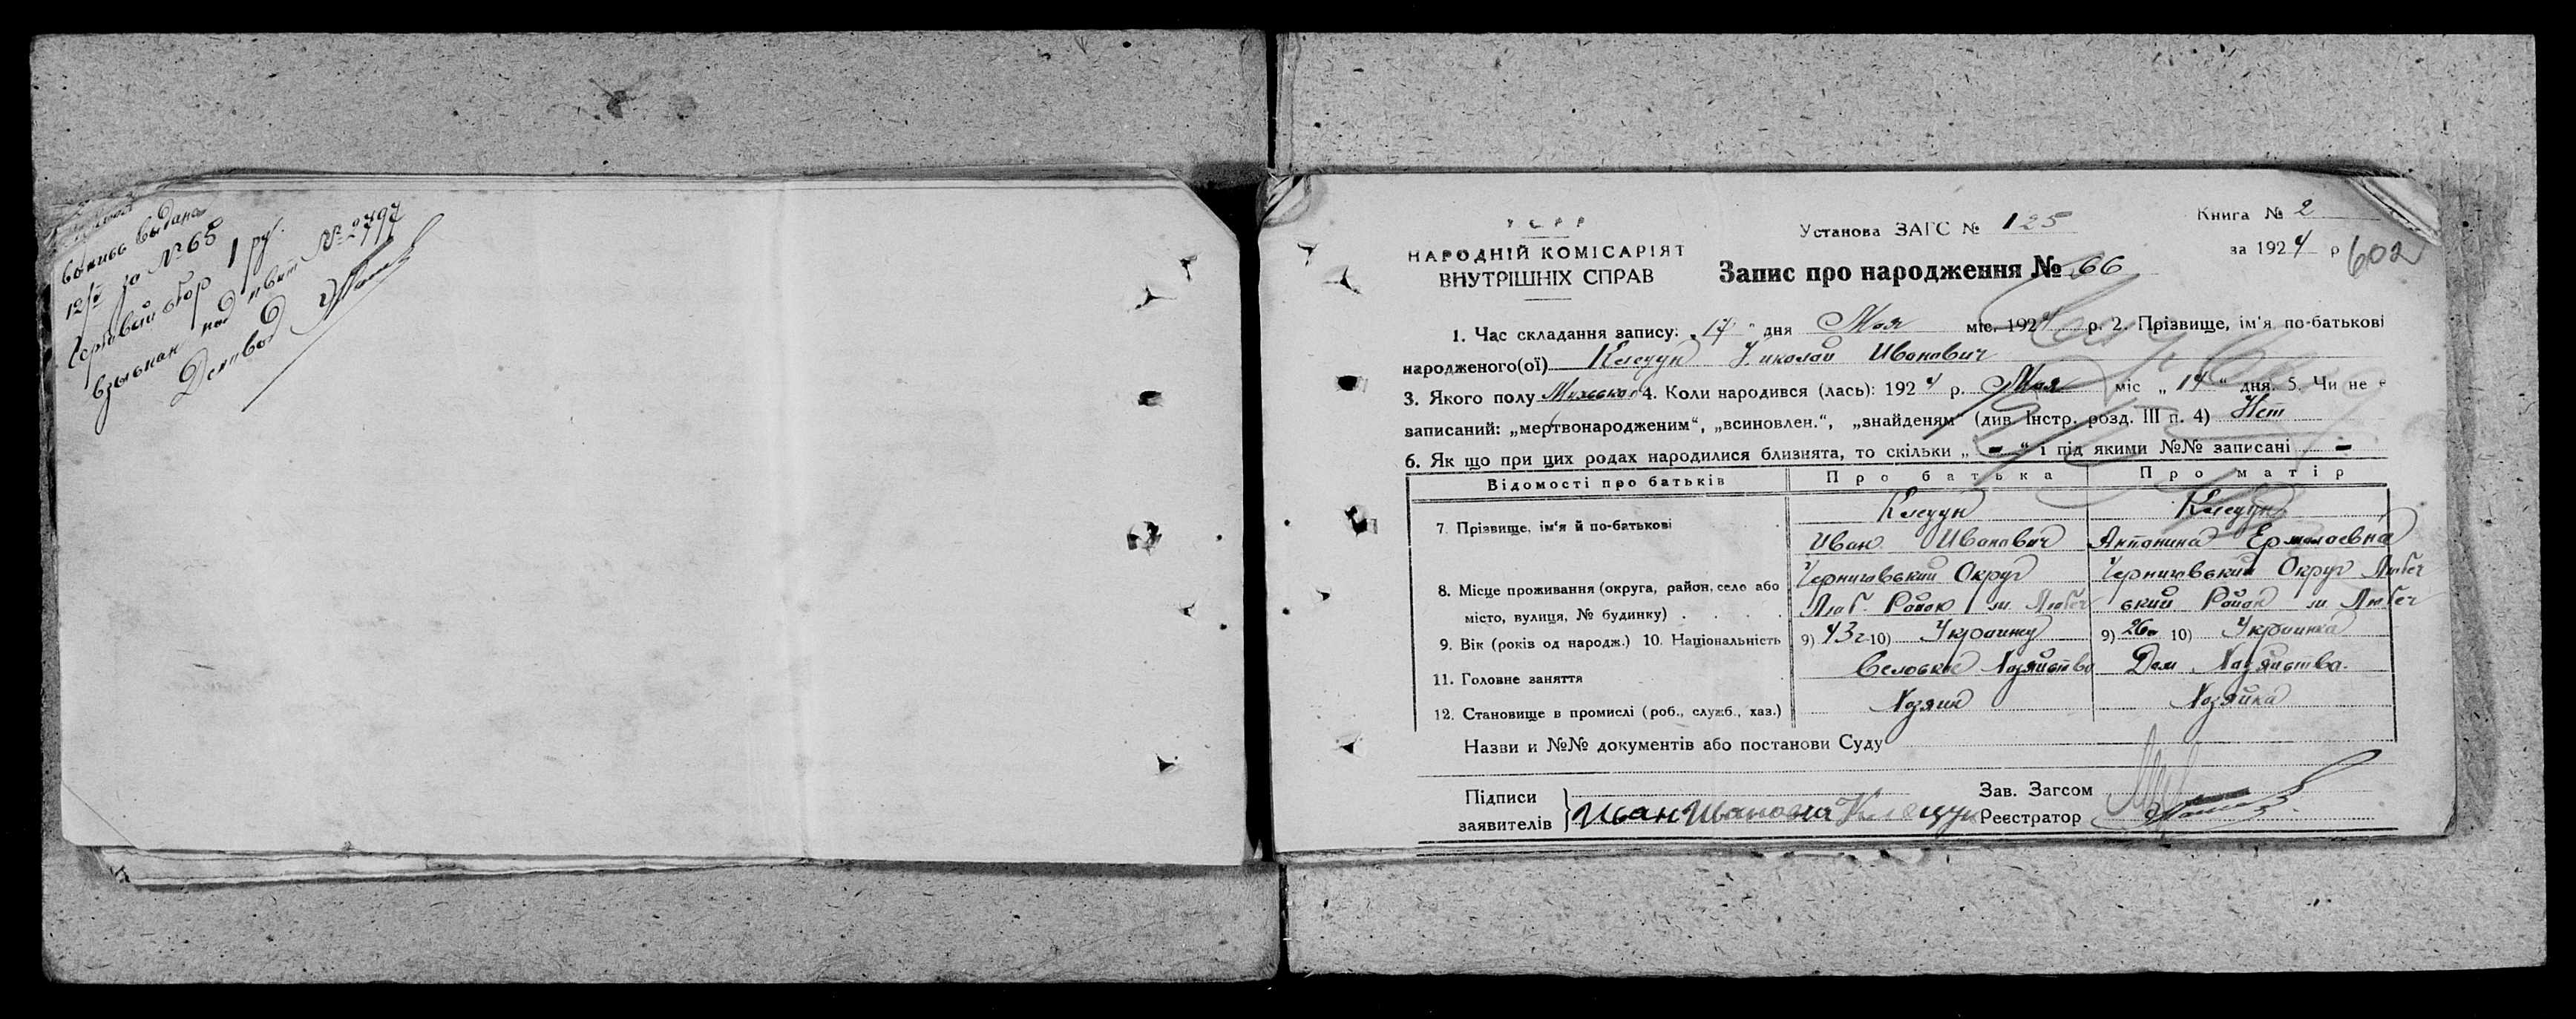 выпись выдана
за № 65
Гербовый сбор 1 руб.
взыскан под квит № 2797
УСРР
НАРОДНІЙ КОМІСАРІЯТ
ВНУТРІШНІХ СПРАВ
Установа ЗАГС № 125
Книга № 2
за 1924 р
602
Запис про народження № 66
1. Час складання запису: „17“ дня Мая міс. 1924 р. 2. Прізвище, ім'я по-батькові
народженого(ої) Клецун Николай Иванович
3. Якого полу 4. Коли народився (лась): 1924 р. Мая міс „14“ дня. 5. Чи не є
записаний: „мертвонародженим“, „всиновлен.“, „знайденям“ (див. Інстр. розд. III п. 4) Нет
6. Як що при цих родах народилися близнята, то скільки „-“ і під якими №№ записані -
Відомості про батьків Про батька Про матір
7. Прізвище, ім'я й по-батькові Клецун Клецун
Иван Иванович Антонина Ермолаевна
8. Місце проживання (округа, район, село або Черниговский Округ Черниговский Округ Любеч
місто, вулиця, № будинку) Люб. Район м. Любеч ский Район м. Любеч
9. Вік (років од народж.) 10. Національність 9) 43 г 10) Украинец 9) 26 10) Украинка
11. Головне заняття Сельское Хозяйство Дом Хозяйства.
12. Становище в промислі (роб., служб., хаз.) Хозяин Хозяйка
Назви и №№ документів або постанови Суду
Підписи
заявителів Иван Иванович Клецун
Зав. Загсом
Реєстратор